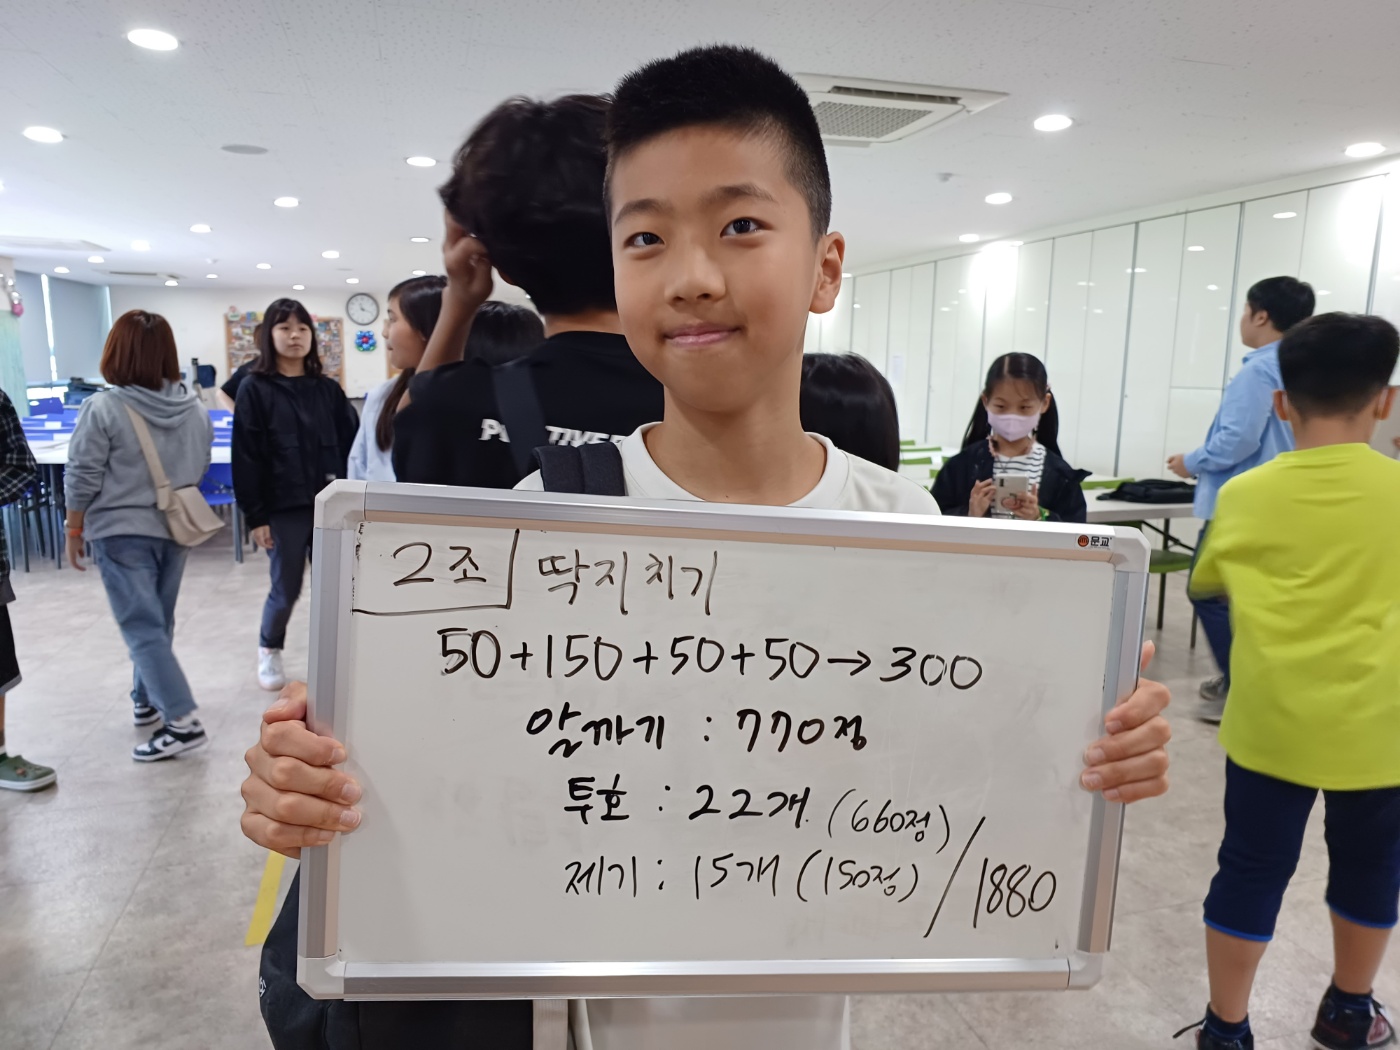 문교
2조 딱지치기
50+150+50+50→300
알까기 : 770점
투호 : 22개 (660점)
제기 : 15개 (150점) / 1880